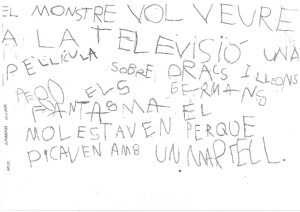 EL MONSTRE VOL VEURE
A LA TELEVISIÓ UNA
PEL·LÍCULA SOBRE DRACS I LLEONS
PERÒ ELS GERMANS
FANTASMA EL
MOLESTAVEN PERQUE
PICAVEN AMB UN MARTELL.